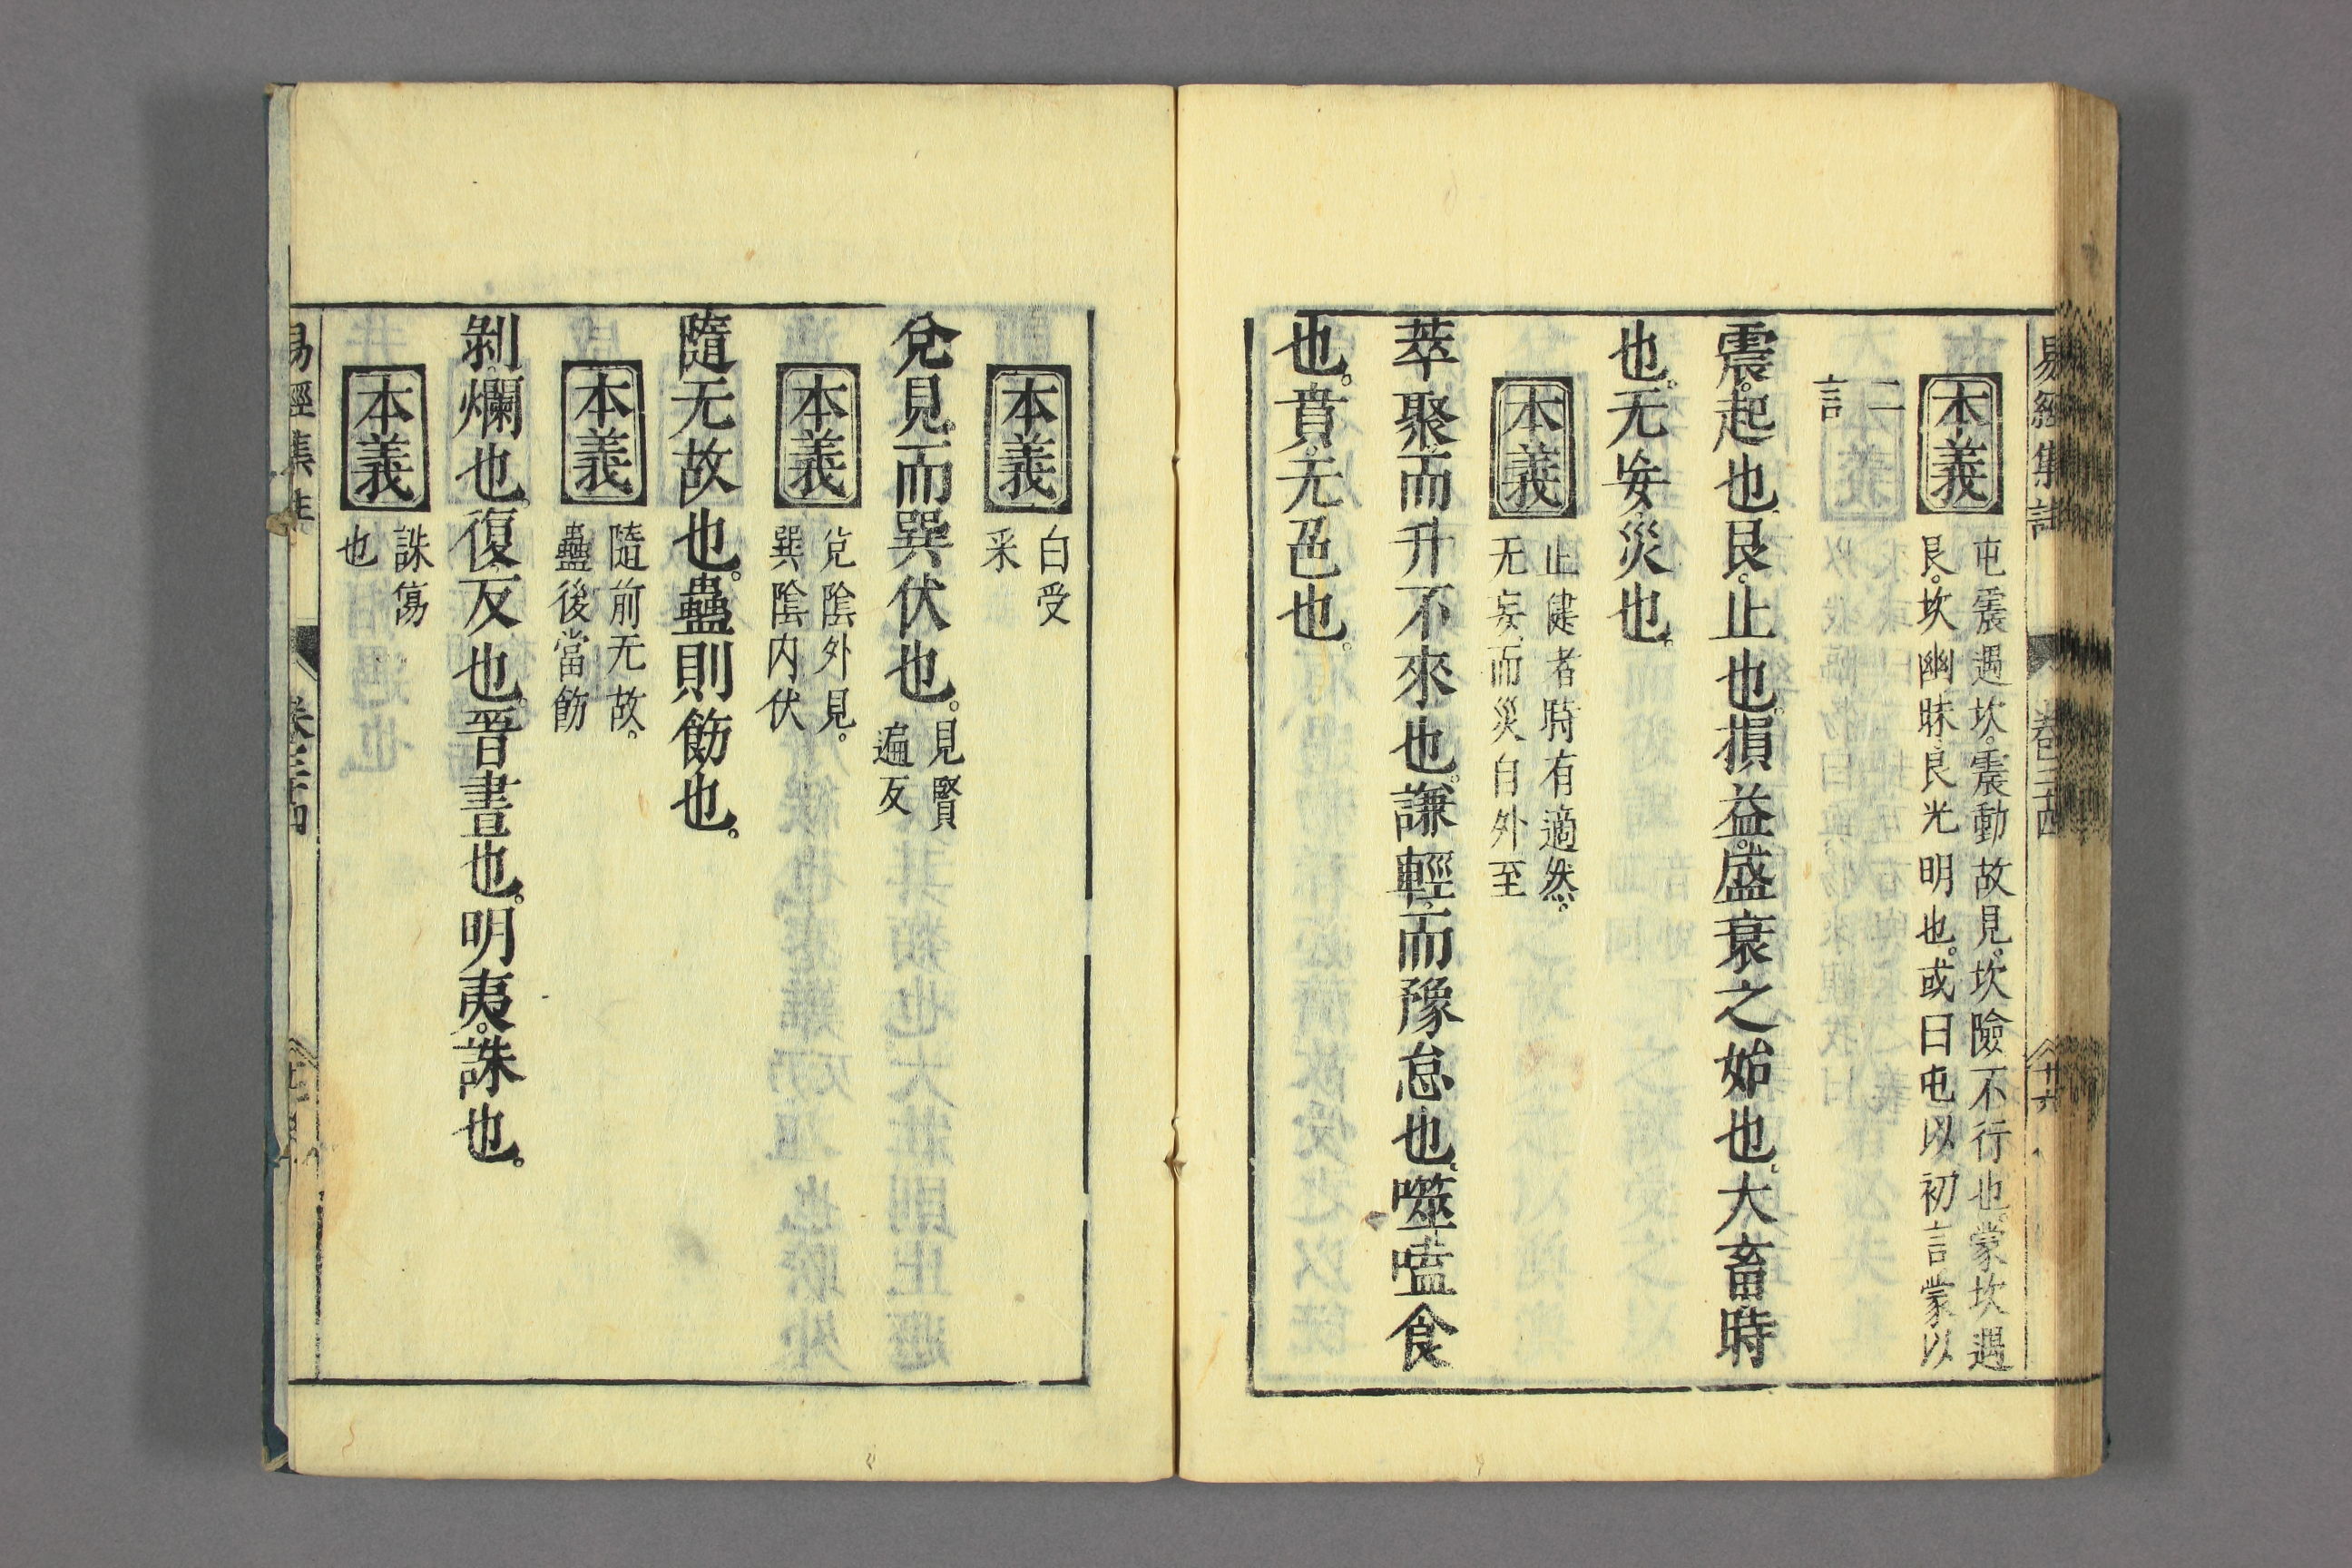 易經集註 卷二十四 廿六
本義 屯震遇坎。震動故見。坎險不行也。蒙坎遇
艮。坎幽昧。艮光明也。或曰屯以初言。蒙以
二
言
震。起也。艮。止也。損益。盛衰之始也。大畜。時
也。无妄。災也。
本義 止健者。時有適然。
无妄而災自外至
萃聚而升不來也。謙輕而豫怠也。噬嗑食
也。賁。无色也。
本義 白受
采
兌見。而巽伏也。見賢
遍反
本義 兌陰外見。
巽陰內伏
隨无故也。蠱則飭也。
本義 隨前无故。
蠱後當飭
剝。爛也。復。反也。晉。晝也。明夷。誅也。
本義 誅傷
也
易經集註